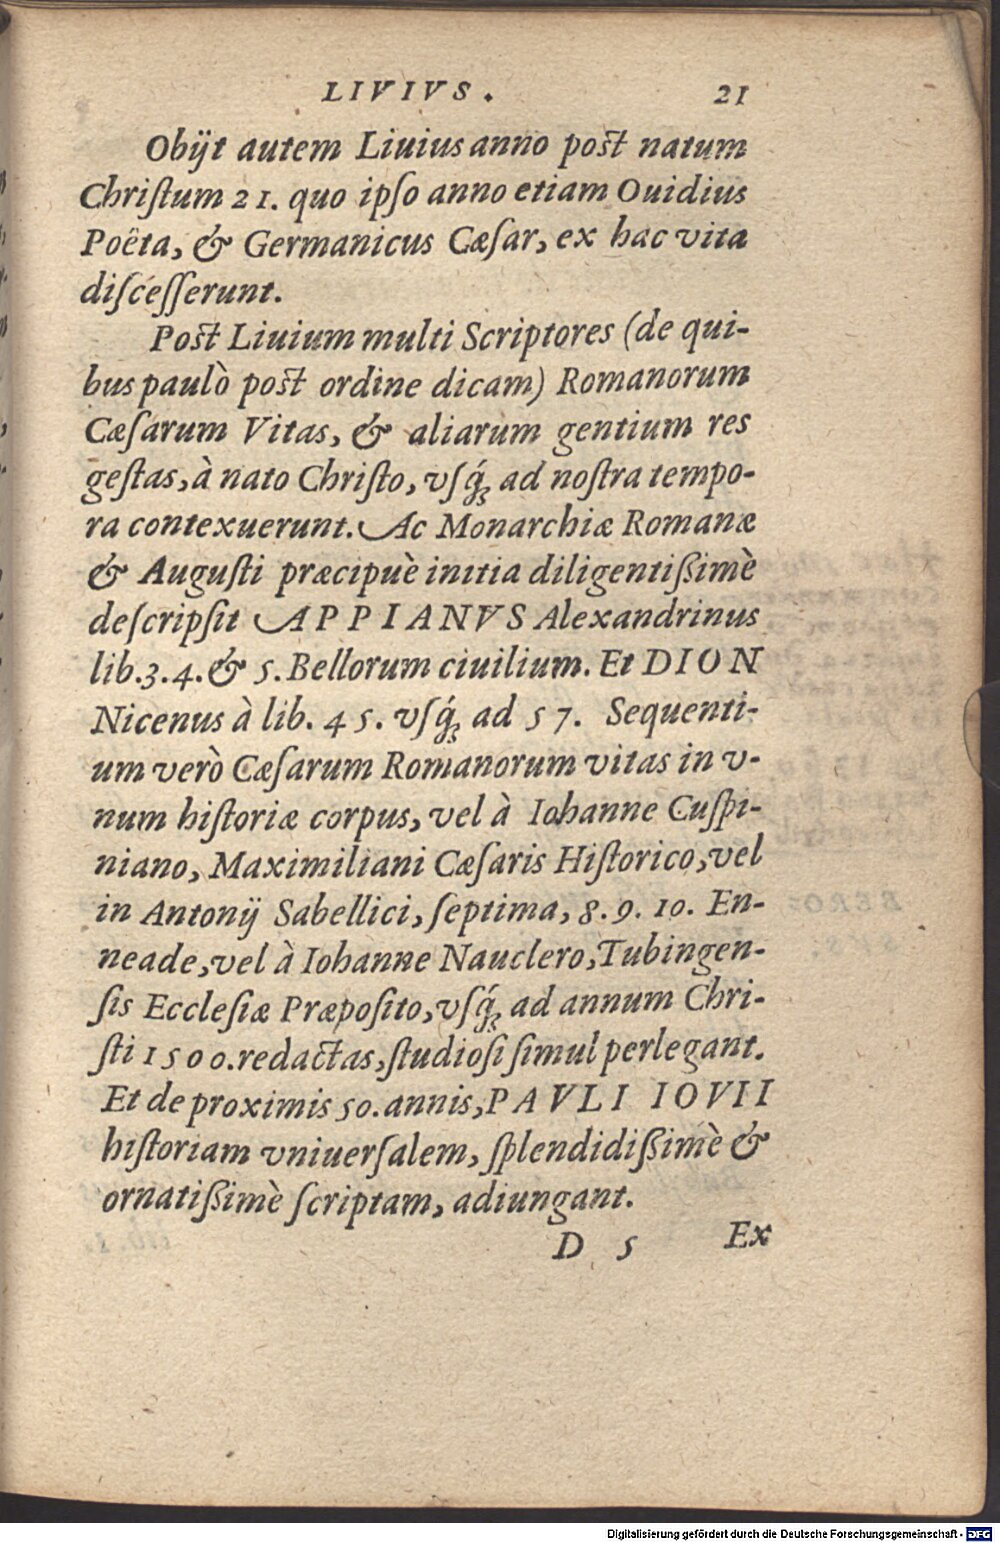 LIVIVS. 21
Obijt autem Liuius anno post natum
Christum 21. quo ipso anno etiam Ouidius
Poëta, & Germanicus Cæsar, ex hac vita
discesserunt.
Post Liuium multi Scriptores (de qui-
bus paulò post ordine dicam) Romanorum
Cæsarum Vitas, & aliarum gentium res
gestas, à nato Christo, vsq́ꝫ ad nostra tempo-
ra contexuerunt. Ac Monarchiæ Romanæ
& Augusti præcipuè initia diligentißimè
descripsit APPIANVS Alexandrinus
lib. 3. 4. & 5. Bellorum ciuilium. Et DION
Nicenus à lib. 45. vsq́ꝫ ad 57. Sequenti-
um verò Cæsarum Romanorum vitas in v-
num historiæ corpus, vel à Iohanne Cuspi-
niano, Maximiliani Cæsaris Historico, vel
in Antonij Sabellici, septima, 8. 9. 10. En-
neade, vel à Iohanne Nauclero, Tubingen-
sis Ecclesiæ Præposito, vsq́ꝫ ad annum Chri-
sti 1500. redactas, studiosi simul perlegant.
Et de proximis 50. annis, PAVLI IOVII
historiam vniuersalem, splendidißimè &
ornatißimè scriptam, adiungant.
D 5 Ex
Digitalisierung gefördert durch die Deutsche Forschungsgemeinschaft - DFG